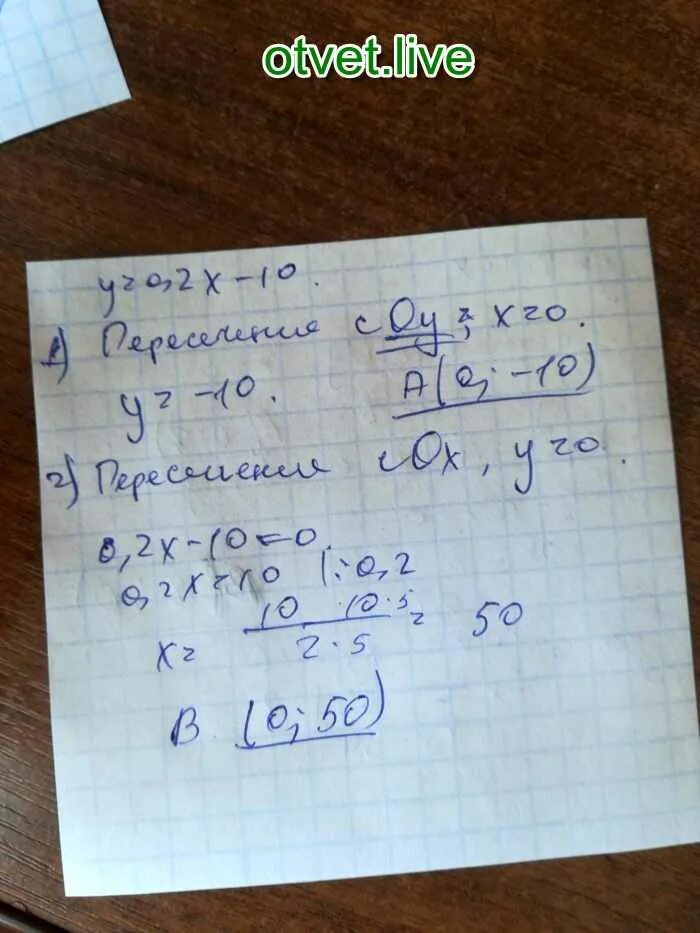 otvet.live
y=0,2x-10.
1) Пересечение с Oy; x=0.
y=-10. A(0; -10)
2) Пересечение с Ox, y=0.
0,2x-10=0.
0,2x=10 |:0,2
x= 10 · 10 · 5 / 2 · 5 = 50
B (0; 50)